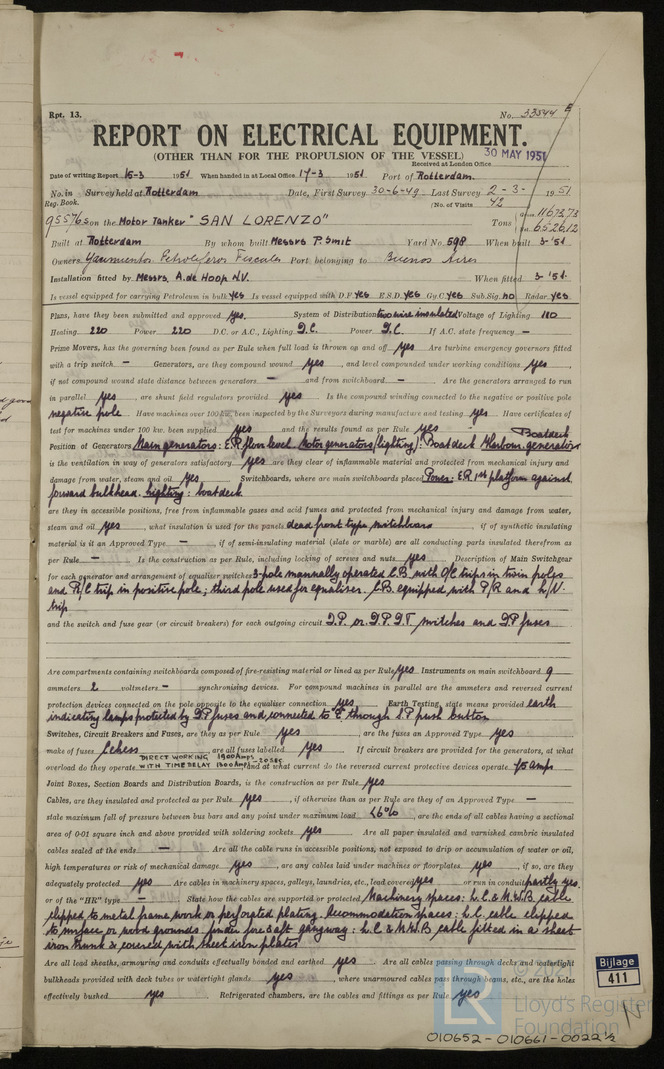 Rpt. 13.
No. 33544 E
REPORT ON ELECTRICAL EQUIPMENT.
(OTHER THAN FOR THE PROPULSION OF THE VESSEL)
Received at London Office 30 MAY 1951
Date of writing Report 15-3 1951 When handed in at Local Office 17-3 1951 Port of Rotterdam.
No. in Reg. Book. Survey held at Rotterdam Date, First Survey 30-6-49 Last Survey 2-3- 1951
(No. of Visits 42
95576 on the Motor Tanker "SAN LORENZO" Tons
Built at Rotterdam By whom built Messrs P. Smit Yard No. 598 When built 3-'51
Owners Yacimientos Petroliferos Fiscales Port belonging to Buenos Aires
Installation fitted by Messrs. A. de Hoop N.V. When fitted 3-'51.
Is vessel equipped for carrying Petroleum in bulk yes Is vessel equipped with D.F. yes E.S.D. yes Gy.C. yes Sub.Sig. no Radar yes
Plans, have they been submitted and approved yes. System of Distribution two wire insulated Voltage of Lighting 110
Heating 220 Power 220 D.C. or A.C., Lighting D.C. Power D.C. If A.C. state frequency –
Prime Movers, has the governing been found as per Rule when full load is thrown on and off yes Are turbine emergency governors fitted
with a trip switch – Generators, are they compound wound yes, and level compounded under working conditions yes,
if not compound wound state distance between generators – and from switchboard – Are the generators arranged to run
in parallel yes, are shunt field regulators provided yes Is the compound winding connected to the negative or positive pole
negative pole Have machines over 100 kw. been inspected by the Surveyors during manufacture and testing yes Have certificates of
test for machines under 100 kw. been supplied yes and the results found as per Rule yes
Position of Generators Main generators: E.R. floor level. Motor generators (lighting): Boatdeck Harbour generators Boatdeck
is the ventilation in way of generators satisfactory yes are they clear of inflammable material and protected from mechanical injury and
damage from water, steam and oil yes Switchboards, where are main switchboards placed Power: E.R. 1st platform against
forward bulkhead. Lighting: boatdeck
are they in accessible positions, free from inflammable gases and acid fumes and protected from mechanical injury and damage from water,
steam and oil yes, what insulation is used for the panels dead front type switchboard, if of synthetic insulating
material is it an Approved Type –, if of semi-insulating material (slate or marble) are all conducting parts insulated therefrom as
per Rule – Is the construction as per Rule, including locking of screws and nuts yes Description of Main Switchgear
for each generator and arrangement of equaliser switches 3-pole mannally operated C.B. with O/C trips in twin poles
and R/C trip in positive pole; third pole used for equaliser. C.B. equipped with P/R and L/V.
trip
and the switch and fuse gear (or circuit breakers) for each outgoing circuit D.P. or D.P.D.T. switches and D.P fuses
Are compartments containing switchboards composed of fire-resisting material or lined as per Rule yes Instruments on main switchboard 9
ammeters 2 voltmeters – synchronising devices. For compound machines in parallel are the ammeters and reversed current
protection devices connected on the pole opposite to the equaliser connection yes Earth Testing, state means provided earth
indicating lamps protected by D.P fuses and connected to "E" through S.P push button
Switches, Circuit Breakers and Fuses, are they as per Rule yes, are the fuses an Approved Type yes
make of fuses, are all fuses labelled yes If circuit breakers are provided for the generators, at what
overload do they operate DIRECT WORKING 1900 Amps WITH TIME DELAY 1300 Amps – 20 sec. and at what current do the reversed current protective devices operate
Joint Boxes, Section Boards and Distribution Boards, is the construction as per Rule yes
Cables, are they insulated and protected as per Rule yes, if otherwise than as per Rule are they of an Approved Type –
state maximum fall of pressure between bus bars and any point under maximum load <6%, are the ends of all cables having a sectional
area of 0·01 square inch and above provided with soldering sockets yes Are all paper insulated and varnished cambric insulated
cables sealed at the ends – Are all the cable runs in accessible positions, not exposed to drip or accumulation of water or oil,
high temperatures or risk of mechanical damage yes, are any cables laid under machines or floorplates yes, if so, are they
adequately protected yes Are cables in machinery spaces, galleys, laundries, etc., lead covered yes or run in conduit partly yes.
or of the "HR" type – State how the cables are supported or protected Machinery spaces: L.C. & M.W.B cable
clipped to metal frame work or perforated plating. Accommodation spaces: L.C. cable clipped
to surface or wood grounds. Under fore & aft gangway: L.C & M.W.B cable fitted in a sheet
iron trunk & covered with sheet iron plates
Are all lead sheaths, armouring and conduits effectually bonded and earthed yes Are all cables passing through decks and watertight
bulkheads provided with deck tubes or watertight glands yes, where unarmoured cables pass through beams, etc., are the holes
effectively bushed yes Refrigerated chambers, are the cables and fittings as per Rule yes
Bijlage
411
Lloyd's Register
Foundation
010652-010661-0022½